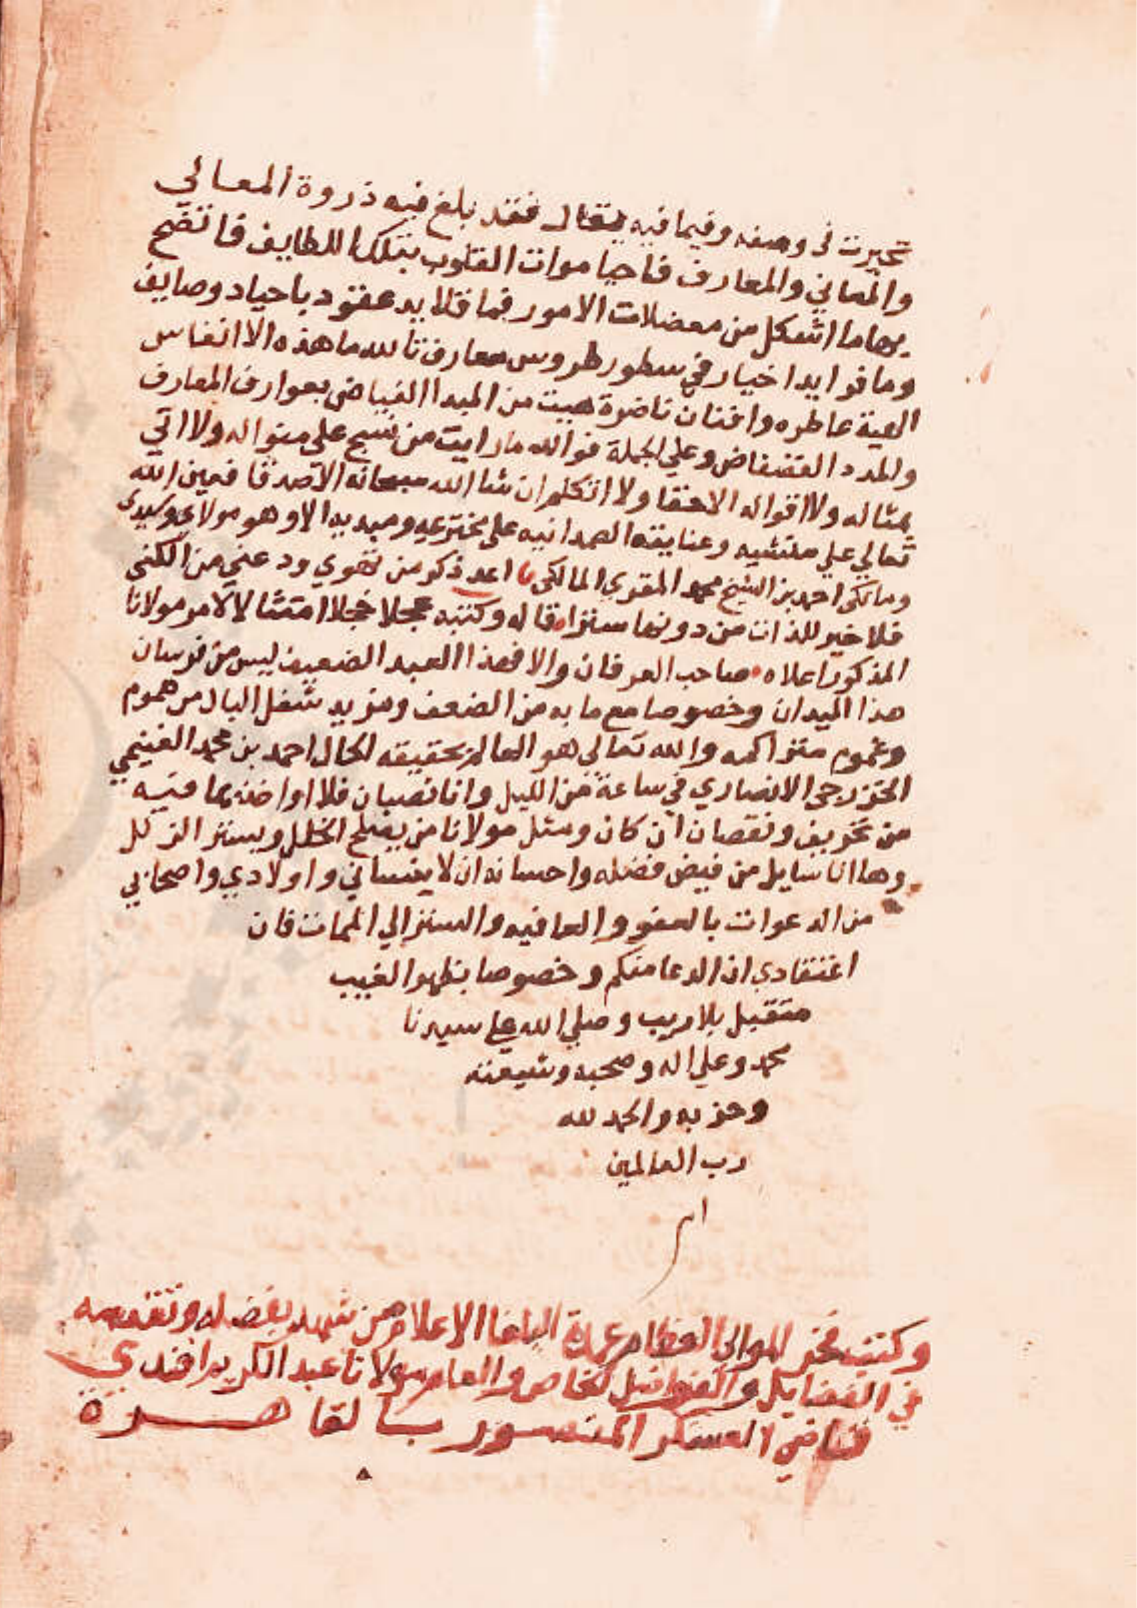 تحيرت في وصفه وفيما فيه يقال فقد بلغ فيه ذروة المعالي
والمعاني والمعارف فاحيا موات القلوب بتلك اللطايف فاتضح
بها ما اشكل من معضلات الامور فما قلايد عقود باجياد وصايف
وما فرايد اخيار في سطور طروس معارف تالله ما هذه الا انفاس
الهية عاطره وافنان ناضرة هبت من المبدا الفياض بعوارف المعارف
والمدد الفضفاض وعلي الجملة فوالله ما رايت من نسج علي منواله ولا اتي
بمثاله ولا اقول الا حقا ولا اتكلم ان شا الله سبحانه الا صدقا فمين الله
تعالي علي منشيه وعنايته الصمدانيه علي مخترعه ومبديه الا وهو مولاي وسيدي
ومالكي احمد بن الشيخ محمد المقري المالكي اعد ذكر من تهوي ودعني من الكني
فلا خير للذات من دونها ستر قاله وكتبه عجلا خجلا امتثالا لامر مولانا
المذكور اعلاه صاحب العرفان والا فهذا العبد الضعيف ليس من فرسان
هذا الميدان وخصوصا مع ما به من الضعف ومزيد شغل البال من هموم
وغموم متراكمه والله تعالي هو العالم بحقيقه الحال احمد بن محمد الغنيمي
الخزرجي الانصاري في ساعة من الليل وانا نعسان فلا اواخذ بما فيه
من تحريف ونقصان ان كان ومثل مولانا من يصلح الخلل ويستر الزلل
وها انا سايل من فيض فضله واحسانه ان لا ينساني واولادي واصحابي
من الدعوات بالعفو والعافيه والستر الي الممات فان
اعتقادي ان الدعا منكم وخصوصا بظهر الغيب
متقبل بلا ريب وصلي الله علي سيدنا
محمد وعلي اله وصحبه وشيعته
وحزبه والحمد لله
رب العالمين
وكتب فخر الموالي العظام عمدة البلغا الاعلام من شهد بفضله وتقدمه
في الفضايل والفواضل الخاص والعام مولانا عبد الكريم افندي
قاضي العسكر المنصور بالقاهرة